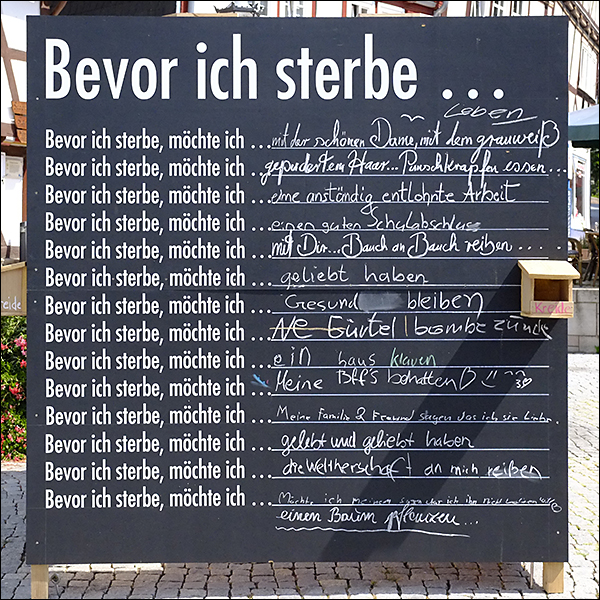 Bevor ich sterbe ...
Leben
Bevor ich sterbe, möchte ich ... mit der schönen Dame, mit dem grauweiß
Bevor ich sterbe, möchte ich ... gepudertem Haar... Punschkrapfen essen...
Bevor ich sterbe, möchte ich ... eine anständig entlohnte Arbeit
Bevor ich sterbe, möchte ich ... einen guten Schulabschluss
Bevor ich sterbe, möchte ich ... mit Dir... Bauch an Bauch reiben....
Bevor ich sterbe, möchte ich ... geliebt haben
Bevor ich sterbe, möchte ich ... Gesund bleiben
Bevor ich sterbe, möchte ich ... Ne Gürtel bombe zünde
Bevor ich sterbe, möchte ich ... ein haus klauen
Bevor ich sterbe, möchte ich ... Meine Bff's behalten
Bevor ich sterbe, möchte ich ... Meine Familie & Freund sagen das ich sie liebe.
Bevor ich sterbe, möchte ich ... gelebt und geliebt haben
Bevor ich sterbe, möchte ich ... die Weltherschaft an mich reißen
Bevor ich sterbe, möchte ich ... Möchte ich meinem ich ihn nicht
einen Baum pflanzen...
Kreide
reide